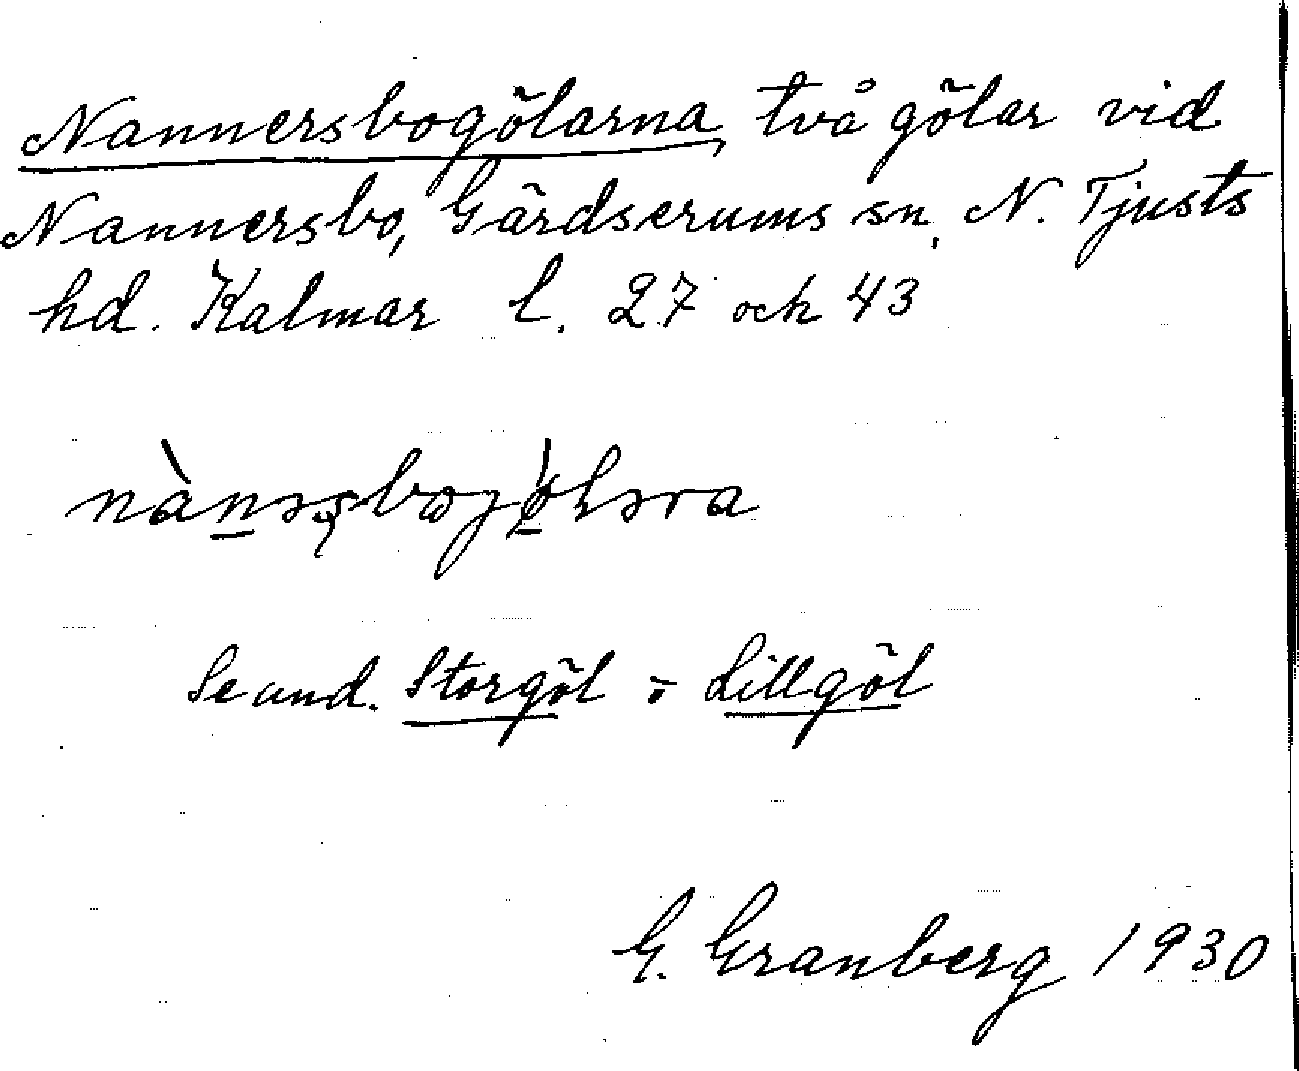 Nannersbogölarna, två gölar vid
Nannersbo, Gärdserums sn, N. Tjusts
hd. Kalmar l. 27 och 43
Se und. Storgöl o Lillgöl
G. Granberg 1930